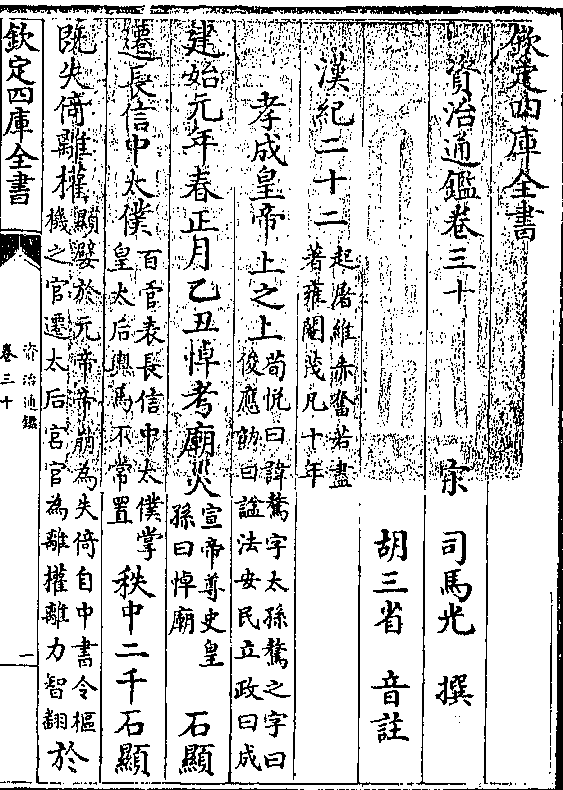 欽定四庫全書
資治通鑑卷三十 宋 司馬光 撰
胡三省 音註
漢紀二十二 起屠維赤奮若盡
著雍閹茂凡十年
孝成皇帝上之上 荀悅曰諱驁字太孫驁之字曰
俊應劭曰諡法安民立政曰成
建始元年春正月乙丑悼考廟災 宣帝尊史皇
孫曰悼廟 石顯
遷長信中太僕 百官表長信中太僕掌
皇太后輿馬不常置 秩中二千石顯
既失倚離權 顯嬖於元帝帝崩為失倚自中書令樞
機之官遷太后官官為離權離力智翻 於
欽定四庫全書
資治通鑑
卷三十
一